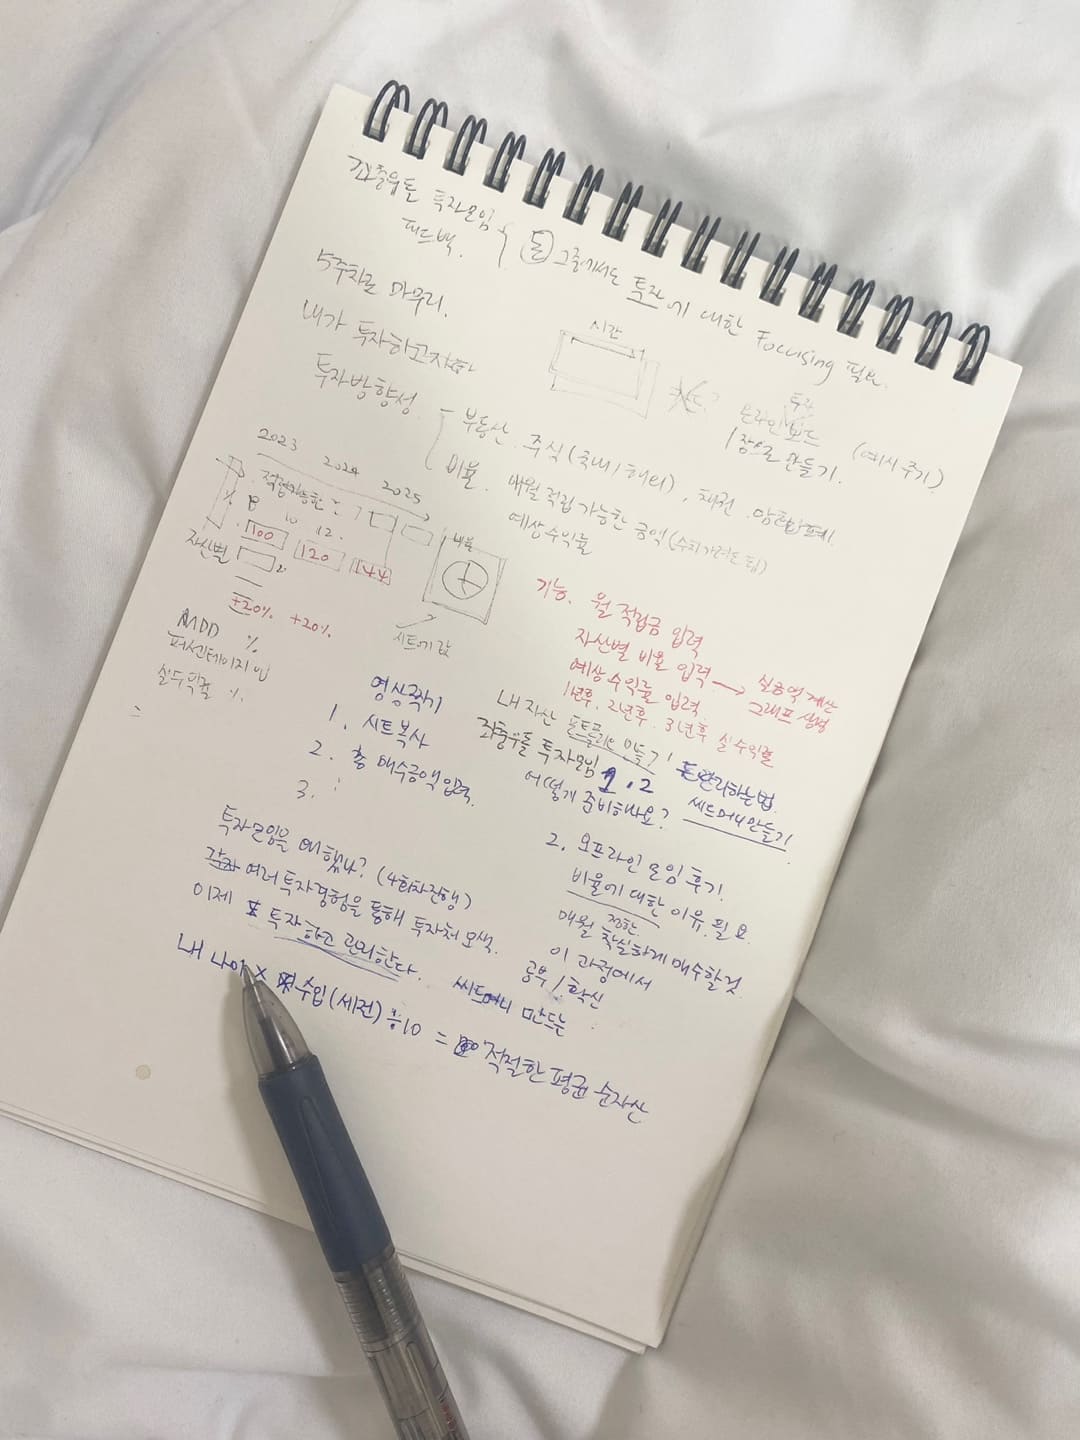 좌충우돌 투자모임
피드백.
돈 그중에서도 투자에 대한 Focusing 필요.
5주차로 마무리.
내가 투자하고자하
투자방향성.
시간
투자
온라인 보드
1장으로 만들기.
(예시 주기)
부동산. 주식(국내/해외), 채권.
비율. 매월 적립 가능한 금액(수치가려도 됨)
예상수익률
2023 2024 2025
적립가능한
10 12.
100 120 144
자산별
비율
+20% +20%
시트에 값
MDD %
퍼센테이지 입
%
기능. 월 적립금 입력
자산별 비율 입력
예상 수익률 입력 → 실금액 계산
그래프 생성
1년후. 2년후. 3년후 실수익률
영상찍기
1. 시트복사
2. 총 매수금액입력.
3. :
내 자산 포트폴리오 만들기!
좌충우돌 투자모임 1.2 관리하는법.
어떻게 준비해나요? 씨드머니 만들기
투자모임을 왜 했나? (4회차진행)
여러 투자경험을 통해 투자처 모색.
이제 투자하고 관리한다.
2. 오프라인 모임 후기!
비율에 대한 이유. 필요.
정한
매월 착실하게 매수할것
이 과정에서
공부/확신
씨드머니 만드는
내 나이 x 수입(세전) ÷10 = 적절한 평균 순자산